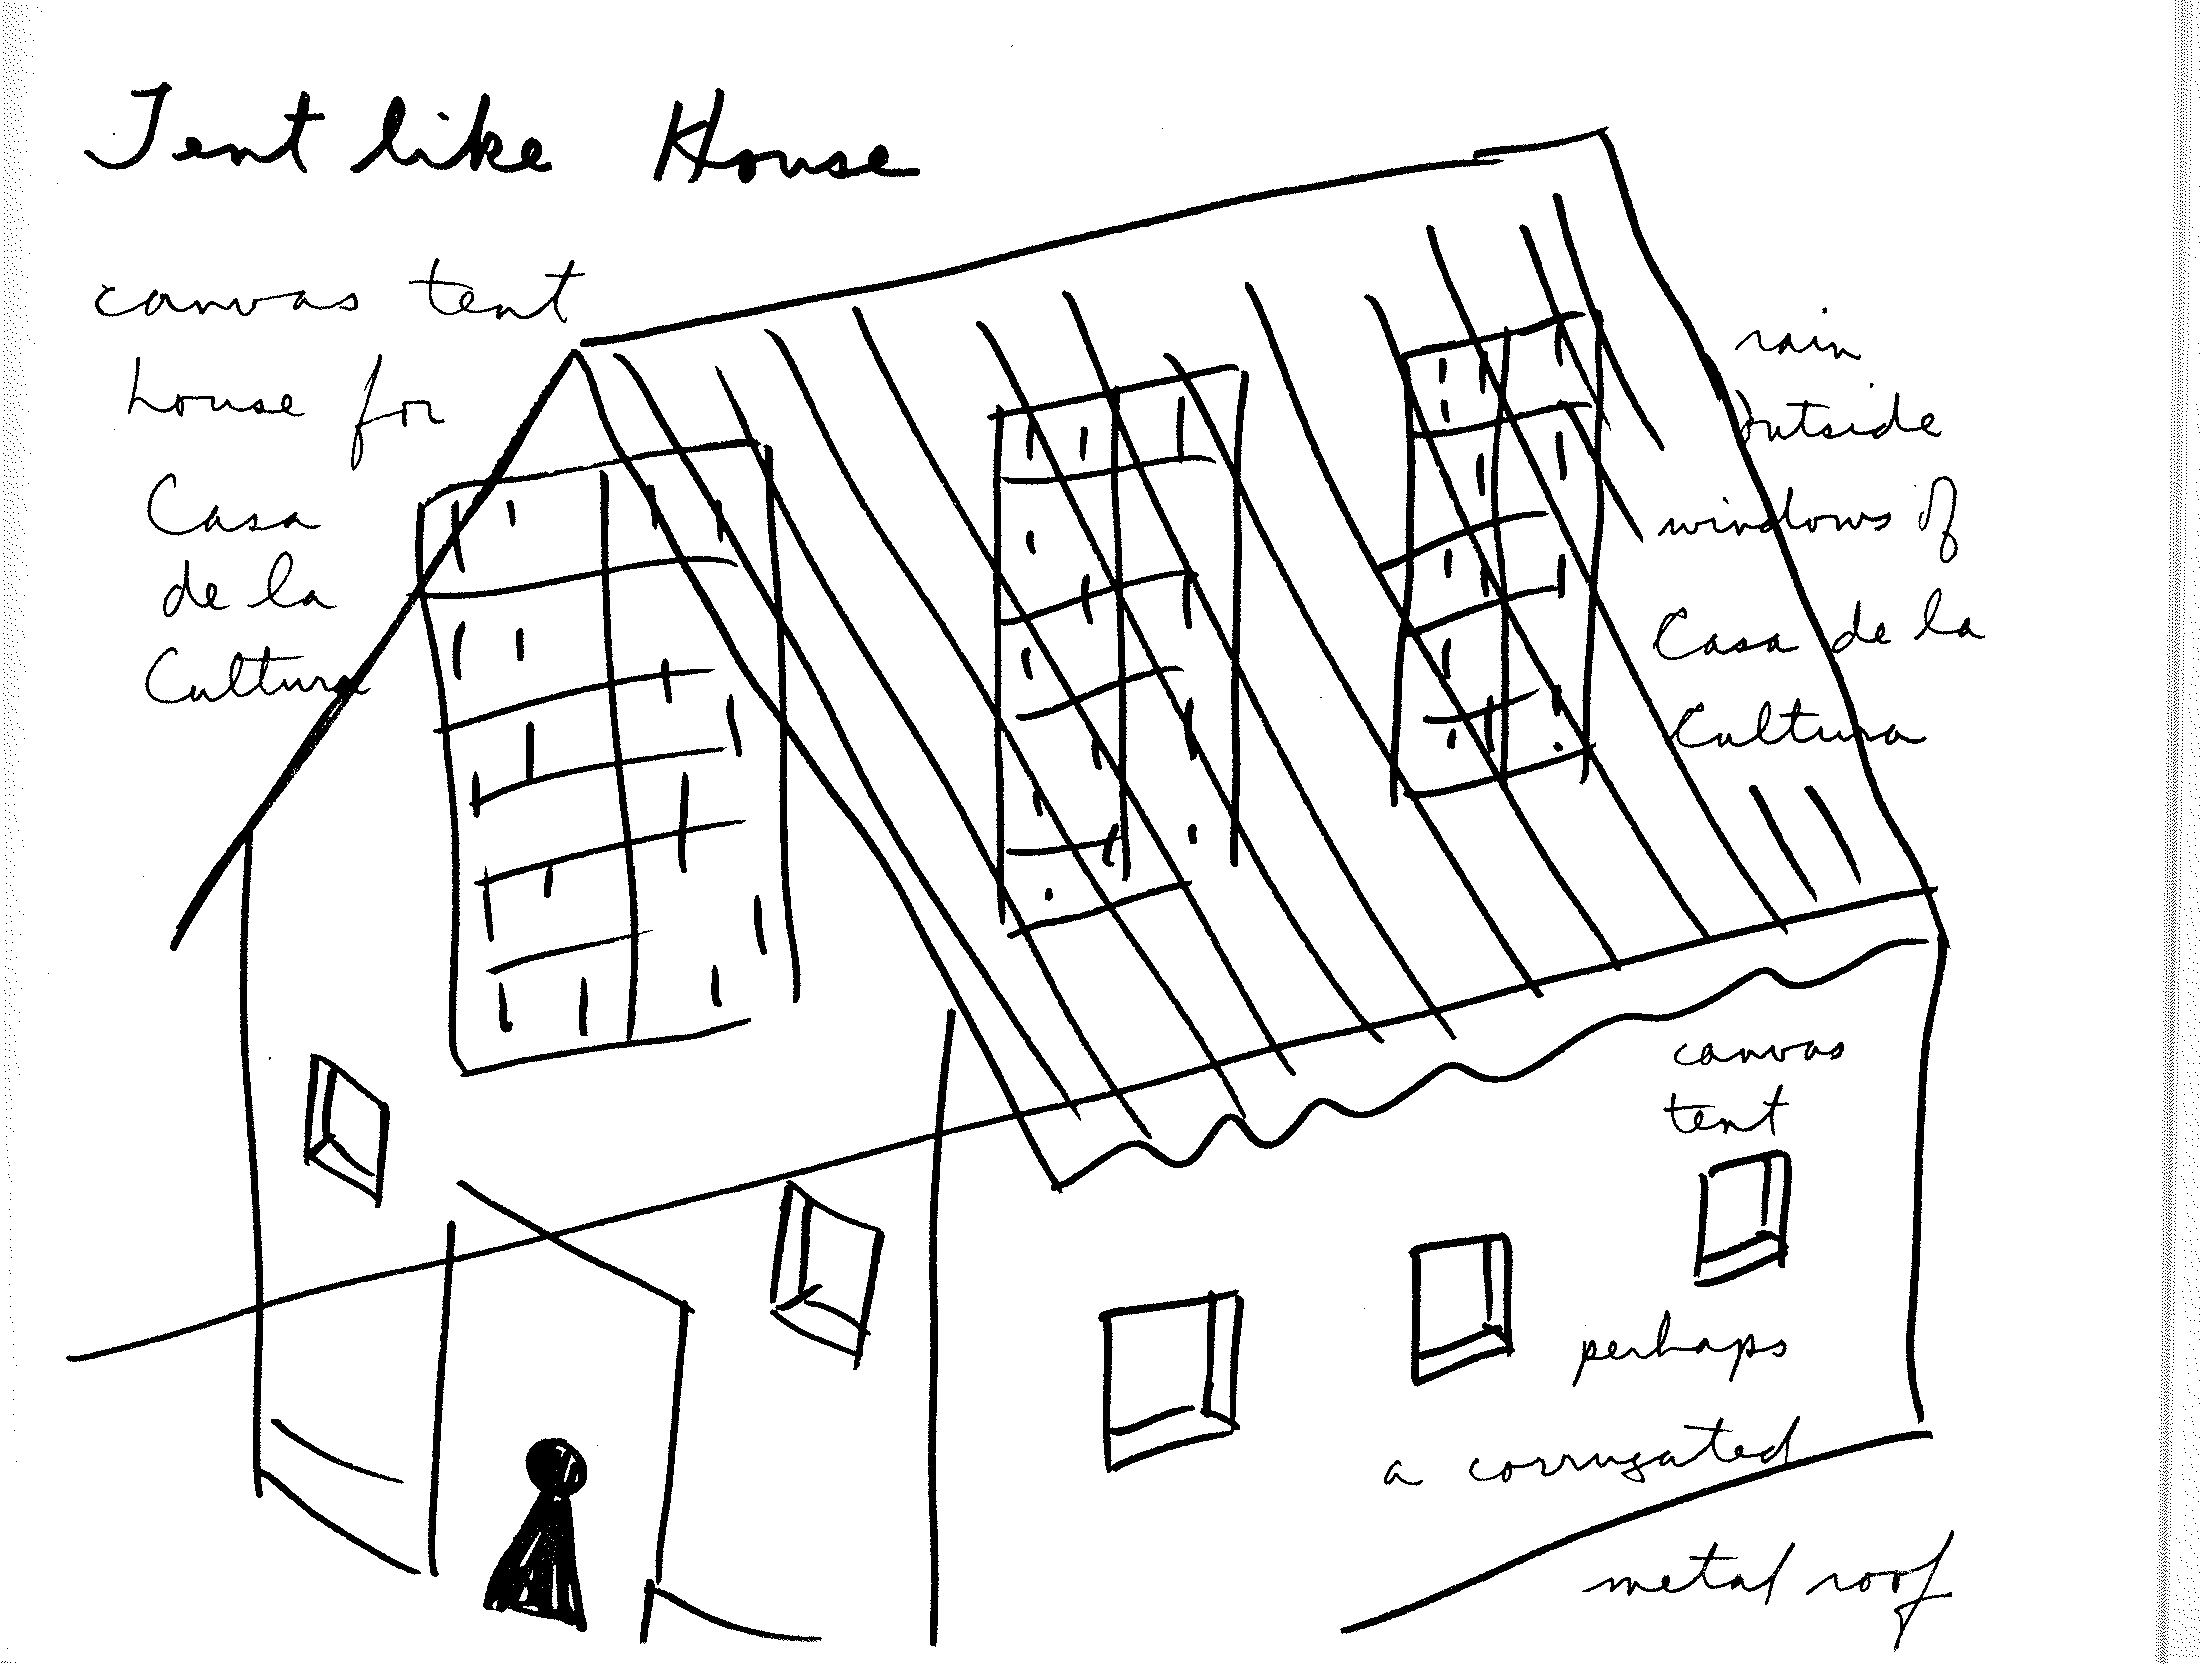 Tent like House
canvas tent
house for
Casa
de la
Cultura
rain
outside
windows of
Casa de la
Cultura
canvas
tent
perhaps
a corrugated
metal roof